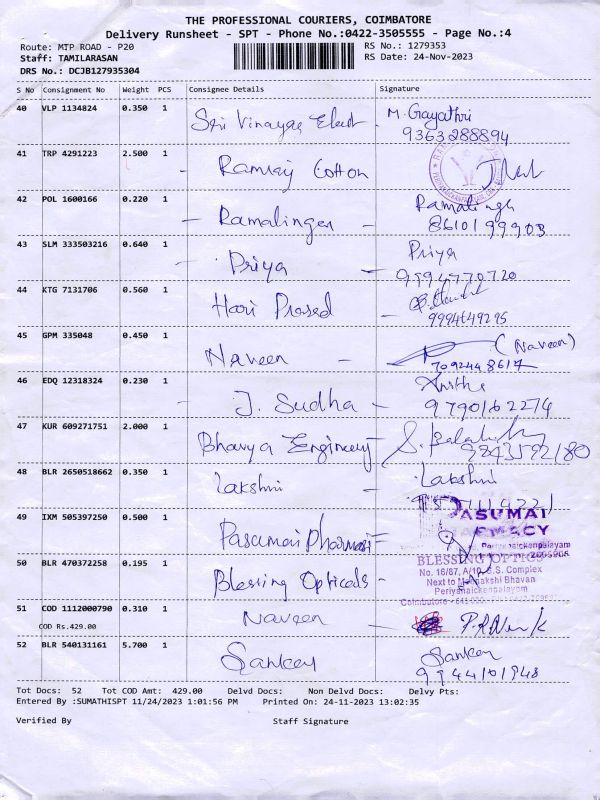 THE PROFESSIONAL COURIERS, COIMBATORE
Delivery Runsheet - SPT - Phone No.:0422-3505555 - Page No.:4
Route: MTP ROAD - P20
RS No.: 1279353
Staff: TAMILARASAN
RS Date: 24-Nov-2023
DRS No.: DCJB127935304
S No Consignment No Weight PCS Consignee Details Signature
40 VLP 1134824 0.350 1 Sri Vinayaga Elect M. Gayathri
9363288894
41 TRP 4291223 2.500 1 Ramraj Cotton
42 POL 1600166 0.220 1 - Ramalingam - Ramalingh
8610199903
43 SLM 333503216 0.640 1 - Priya - Priya
9994770720
44 KTG 7131706 0.560 1 Hari Prasad -
9994649295
45 GPM 335048 0.450 1 Naveen - (Naveen)
7092448617
46 EDQ 12318324 0.230 1 J. Sudha - Anitha
9790162274
47 KUR 609271751 2.000 1 Bhavya Engineery
48 BLR 2650518662 0.350 1 Lakshmi - Lakshmi
49 IXM 505397250 0.500 1 Pasumai Pharmasi PASUMAI
PHARMACY
Periyanaickenpalayam
50 BLR 470372258 0.195 1 Blessing Opticals - BLESSING OPTICS
No. 16/87, A/10, S.S. Complex
Next to Meenakshi Bhavan
Periyanaickenpalayam
51 COD 1112000790 0.310 1 Naveen
COD Rs.429.00
52 BLR 540131161 5.700 1 Sankey Sankey
9944101948
Tot Docs: 52 Tot COD Amt: 429.00 Delvd Docs: Non Delvd Docs: Delvy Pts:
Entered By :SUMATHISPT 11/24/2023 1:01:56 PM Printed On: 24-11-2023 13:02:35
Verified By Staff Signature